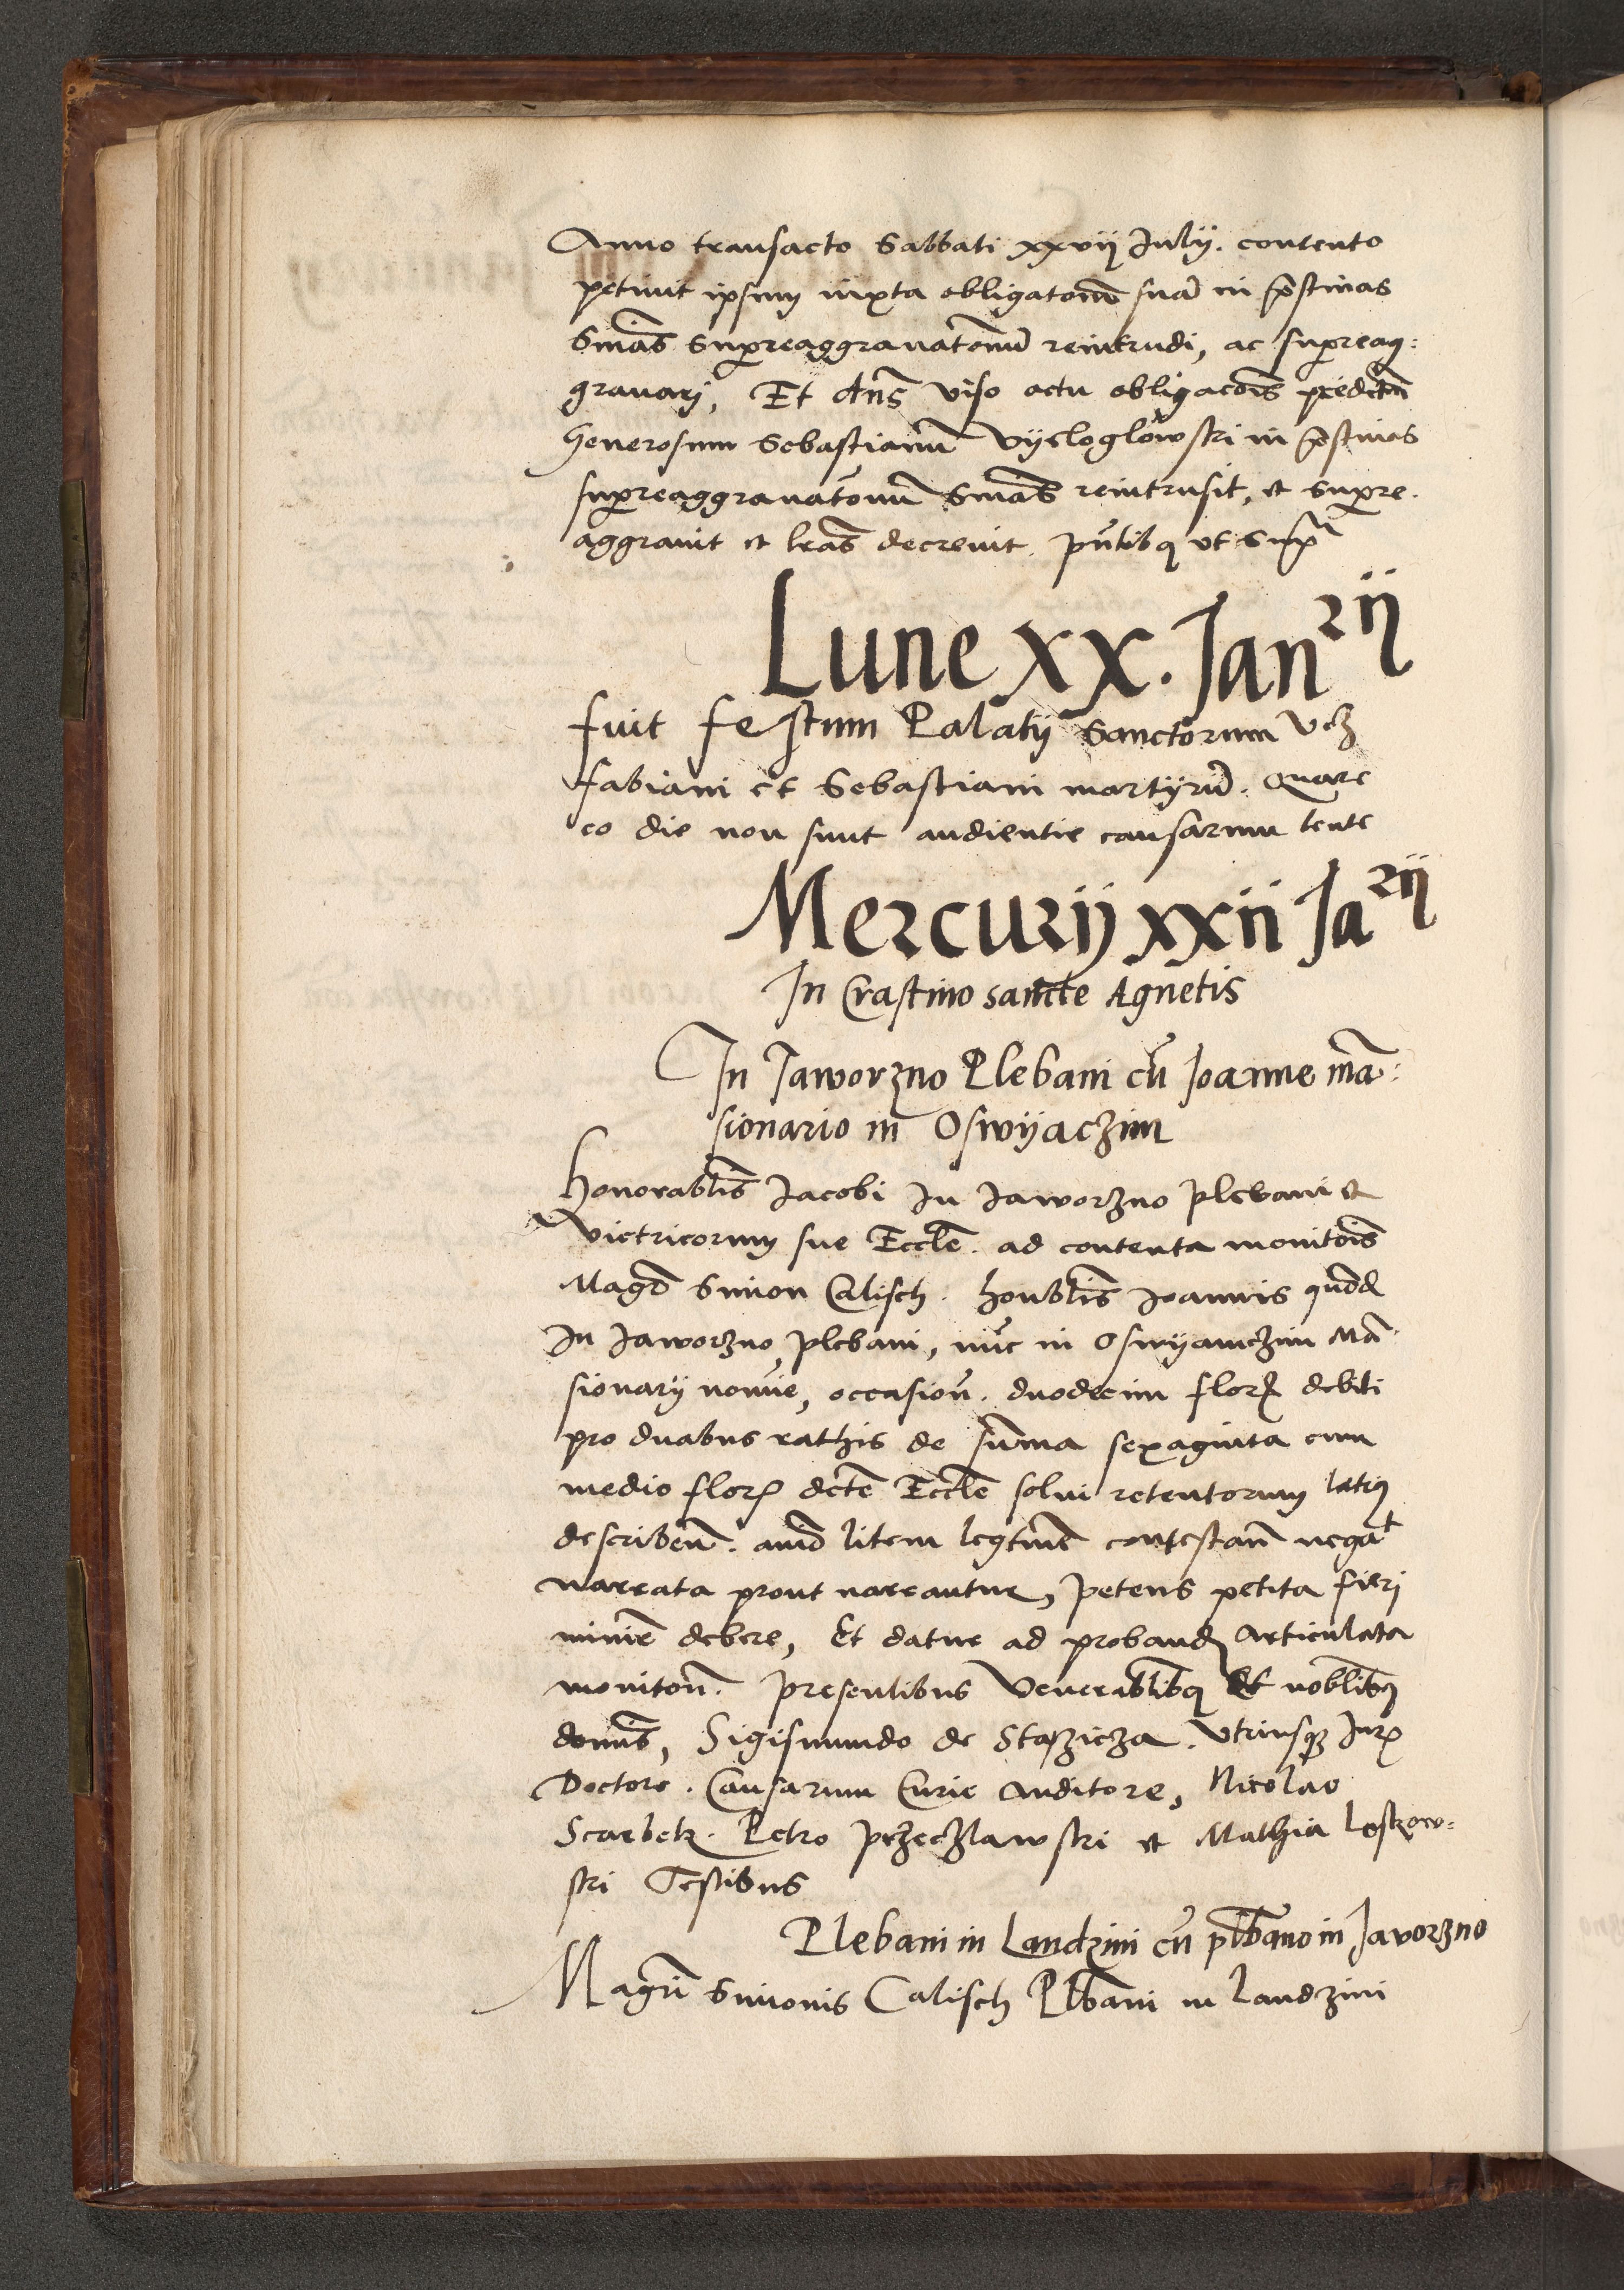 Anno transacto Sabbati xxvij Julij. contento
petiuit ipsum iuxta obligatonẽ suã in p̃stinas
Snĩas supẽreaggrauatonũ reintrudi, ac supereag:
grauarj, Et dns̃ viso actu obligacõis predictũ
Generosum Sebastianũ Vijeloglowski in p̃stinas
supereaggrauatonũ Snĩas reintrusit, et supere.
aggrauit et lrãs decreuit. pñtibq vt supᵃ
Lune xx. Janʳⁱʲ
fuit festum Palatij Sanctorum vcz
fabiani et Sebastiani martijrũ. Quare
eo die non sunt audientie causarum tente
Mercurij xxii Jaʳⁱʲ
In Crastino sancte Agnetis
In Jaworzno Plebani cũ Joanne mã:
sionario in Oswijaczim
Honorabl̃is Jacobi In Jaworzno plebani et
victricorum sue Eccl̃e. ad contenta monitõis
Magr̃ Simon Calisch. honbl̃is Joannis qũdã
In Jaworzno plebani, nũc in Oswijanczim Mã
sionarij nomĩe, occasioñ. duodecim florꝝ debiti
pro duabus rathis de sũma sexaginta cum
medio florꝝ dcte Eccl̃e solui retentorum latiq
describeñ. animo litem legtime contestañ negat
narrata prout narrantur, petens petita fieri
minime debere, Et datur ad probandꝫ Articulata
monitoñ. presentibus Venerabl̃ibq Et nobl̃ibq
domĩs, Sigismundo de Stazicza. Vtriusqꝫ Jurꝝ
Doctore. Causarum Curie Auditore, Nicolao
Scarbek. Petro przeczlawski et Mathia Loskow=
ski Testibus
Plebani in Landzini cũ plb̃ano in Javorzno
Magrĩ Simonis Calisch Plb̃ani in Landzini